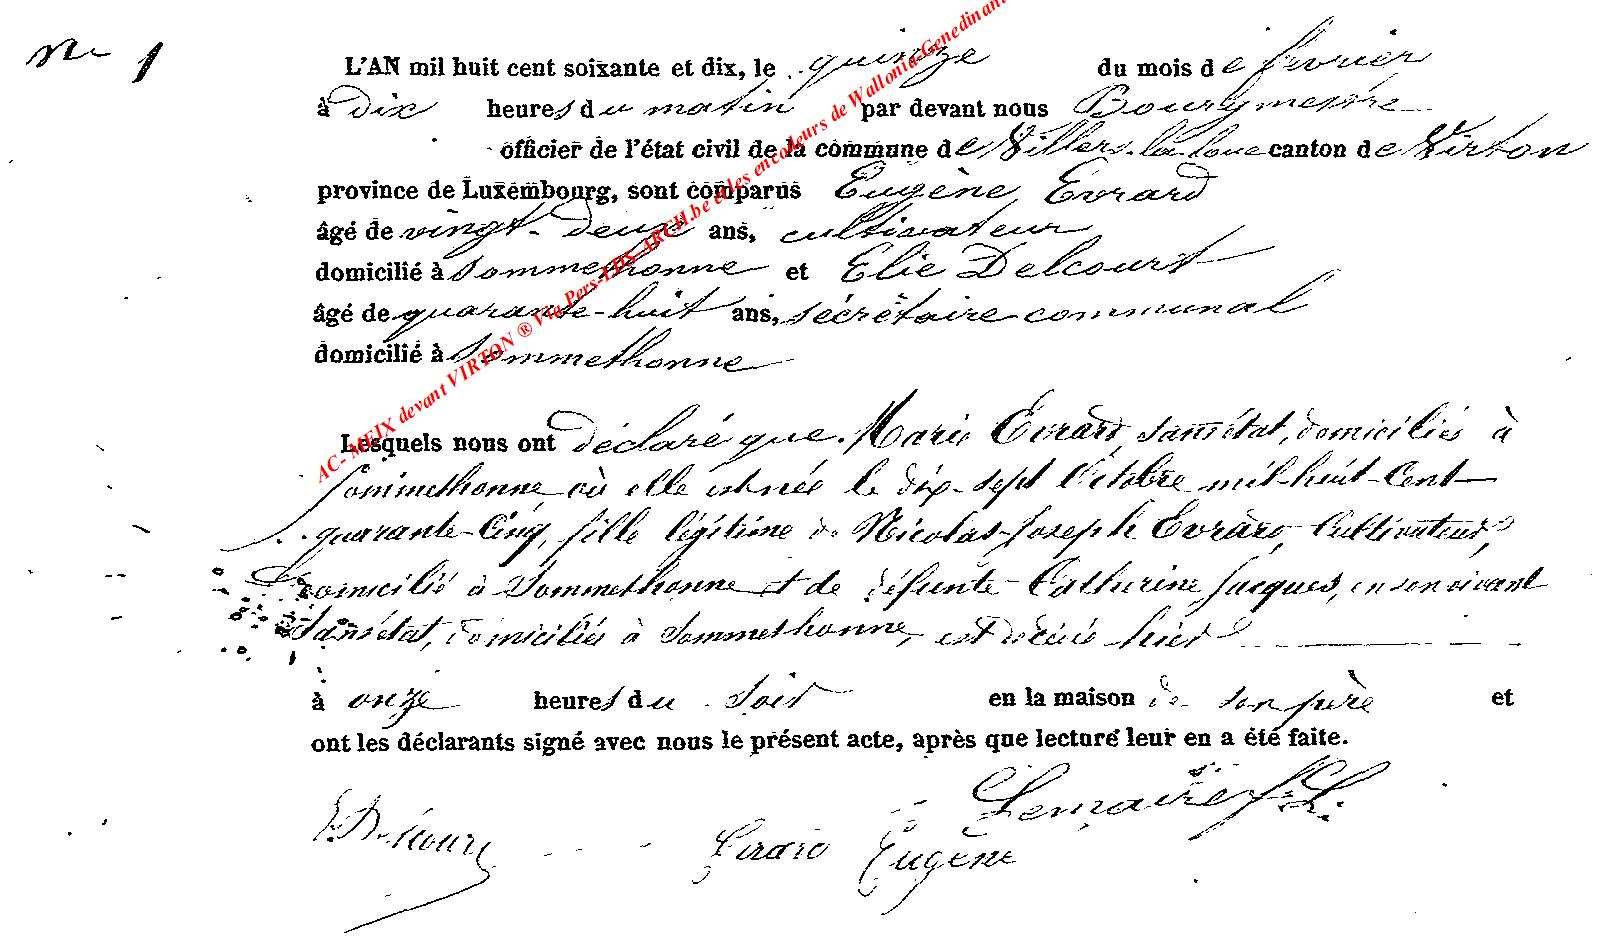 N° 1
L'AN mil huit cent soixante et dix, le quinze du mois de février
à dix heures du matin par devant nous Bourgmestre
officier de l'état civil de la commune de Villers-la-loue canton de Virton
province de Luxembourg, sont comparus Eugène Evrard
âgé de vingt-deux ans, cultivateur
domicilié à Sommethonne et Elie Delcourt
âgé de quarante-huit ans, sécrétaire communal
domicilié à Sommethonne
Lesquels nous ont déclaré que Marie Evrard, sans état, domiciliée à
Sommethonne où elle est née le dix-sept Octobre mil-huit-Cent
quarante-Cinq, fille légitime de Nicolas-Joseph Evrard, Cultivateur,
domicilié à Sommethonne et de défunte Catherine Jacques, en son vivant
sans état, domiciliée à Sommethonne, est décédée hier
à onze heures du soir en la maison de son père et
ont les déclarants signé avec nous le présent acte, après que lecture leur en a été faite.
Lemaire f. L.
E. Delcourt Evrard Eugène
AC- MEIX devant VIRTON ® Via Pers-LUX ARCH.be et les encodeurs de Wallonia-Genedinant